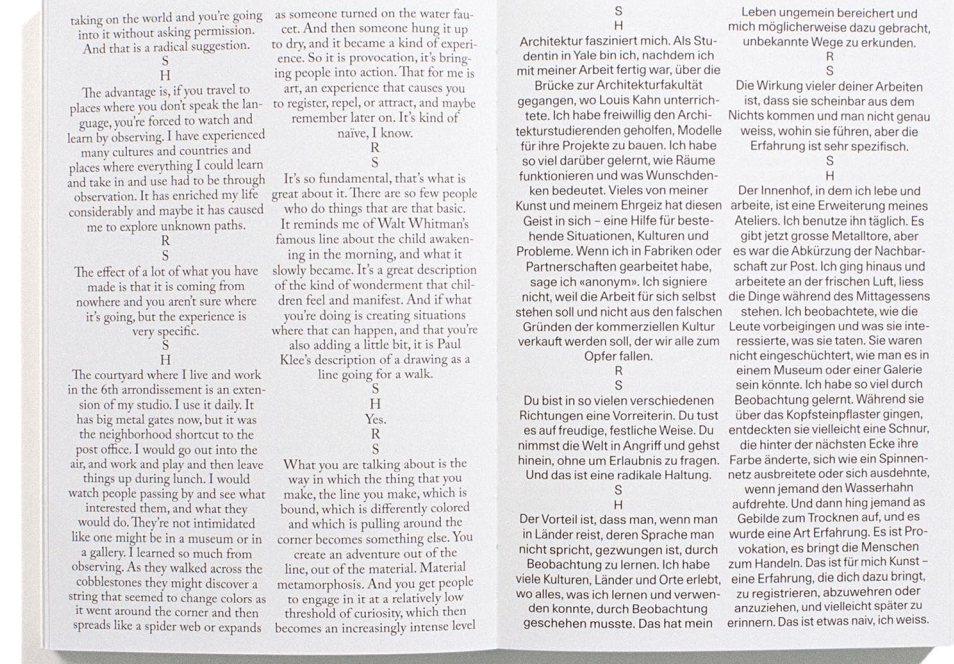 taking on the world and you're going
into it without asking permission.
And that is a radical suggestion.
S
H
The advantage is, if you travel to
places where you don't speak the lan-
guage, you're forced to watch and
learn by observing. I have experienced
many cultures and countries and
places where everything I could learn
and take in and use had to be through
observation. It has enriched my life
considerably and maybe it has caused
me to explore unknown paths.
R
S
The effect of a lot of what you have
made is that it is coming from
nowhere and you aren't sure where
it's going, but the experience is
very specific.
S
H
The courtyard where I live and work
in the 6th arrondissement is an exten-
sion of my studio. I use it daily. It
has big metal gates now, but it was
the neighborhood shortcut to the
post office. I would go out into the
air, and work and play and then leave
things up during lunch. I would
watch people passing by and see what
interested them, and what they
would do. They're not intimidated
like one might be in a museum or in
a gallery. I learned so much from
observing. As they walked across the
cobblestones they might discover a
string that seemed to change colors as
it went around the corner and then
spreads like a spider web or expands
as someone turned on the water fau-
cet. And then someone hung it up
to dry, and it became a kind of experi-
ence. So it is provocation, it's bring-
ing people into action. That for me is
art, an experience that causes you
to register, repel, or attract, and maybe
remember later on. It's kind of
naïve, I know.
R
S
It's so fundamental, that's what is
great about it. There are so few people
who do things that are that basic.
It reminds me of Walt Whitman's
famous line about the child awaken-
ing in the morning, and what it
slowly became. It's a great description
of the kind of wonderment that chil-
dren feel and manifest. And if what
you're doing is creating situations
where that can happen, and that you're
also adding a little bit, it is Paul
Klee's description of a drawing as a
line going for a walk.
S
H
Yes.
R
S
What you are talking about is the
way in which the thing that you
make, the line you make, which is
bound, which is differently colored
and which is pulling around the
corner becomes something else. You
create an adventure out of the
line, out of the material. Material
metamorphosis. And you get people
to engage in it at a relatively low
threshold of curiosity, which then
becomes an increasingly intense level
S
H
Architektur fasziniert mich. Als Stu-
dentin in Yale bin ich, nachdem ich
mit meiner Arbeit fertig war, über die
Brücke zur Architekturfakultät
gegangen, wo Louis Kahn unterrich-
tete. Ich habe freiwillig den Archi-
tekturstudierenden geholfen, Modelle
für ihre Projekte zu bauen. Ich habe
so viel darüber gelernt, wie Räume
funktionieren und was Wunschden-
ken bedeutet. Vieles von meiner
Kunst und meinem Ehrgeiz hat diesen
Geist in sich – eine Hilfe für beste-
hende Situationen, Kulturen und
Probleme. Wenn ich in Fabriken oder
Partnerschaften gearbeitet habe,
sage ich «anonym». Ich signiere
nicht, weil die Arbeit für sich selbst
stehen soll und nicht aus den falschen
Gründen der kommerziellen Kultur
verkauft werden soll, der wir alle zum
Opfer fallen.
R
S
Du bist in so vielen verschiedenen
Richtungen eine Vorreiterin. Du tust
es auf freudige, festliche Weise. Du
nimmst die Welt in Angriff und gehst
hinein, ohne um Erlaubnis zu fragen.
Und das ist eine radikale Haltung.
S
H
Der Vorteil ist, dass man, wenn man
in Länder reist, deren Sprache man
nicht spricht, gezwungen ist, durch
Beobachtung zu lernen. Ich habe
viele Kulturen, Länder und Orte erlebt,
wo alles, was ich lernen und verwen-
den konnte, durch Beobachtung
geschehen musste. Das hat mein
Leben ungemein bereichert und
mich möglicherweise dazu gebracht,
unbekannte Wege zu erkunden.
R
S
Die Wirkung vieler deiner Arbeiten
ist, dass sie scheinbar aus dem
Nichts kommen und man nicht genau
weiss, wohin sie führen, aber die
Erfahrung ist sehr spezifisch.
S
H
Der Innenhof, in dem ich lebe und
arbeite, ist eine Erweiterung meines
Ateliers. Ich benutze ihn täglich. Es
gibt jetzt grosse Metalltore, aber
es war die Abkürzung der Nachbar-
schaft zur Post. Ich ging hinaus und
arbeitete an der frischen Luft, liess
die Dinge während des Mittagessens
stehen. Ich beobachtete, wie die
Leute vorbeigingen und was sie inte-
ressierte, was sie taten. Sie waren
nicht eingeschüchtert, wie man es in
einem Museum oder einer Galerie
sein könnte. Ich habe so viel durch
Beobachtung gelernt. Während sie
über das Kopfsteinpflaster gingen,
entdeckten sie vielleicht eine Schnur,
die hinter der nächsten Ecke ihre
Farbe änderte, sich wie ein Spinnen-
netz ausbreitete oder sich ausdehnte,
wenn jemand den Wasserhahn
aufdrehte. Und dann hing jemand as
Gebilde zum Trocknen auf, und es
wurde eine Art Erfahrung. Es ist Pro-
vokation, es bringt die Menschen
zum Handeln. Das ist für mich Kunst –
eine Erfahrung, die dich dazu bringt,
zu registrieren, abzuwehren oder
anzuziehen, und vielleicht später zu
erinnern. Das ist etwas naiv, ich weiss.